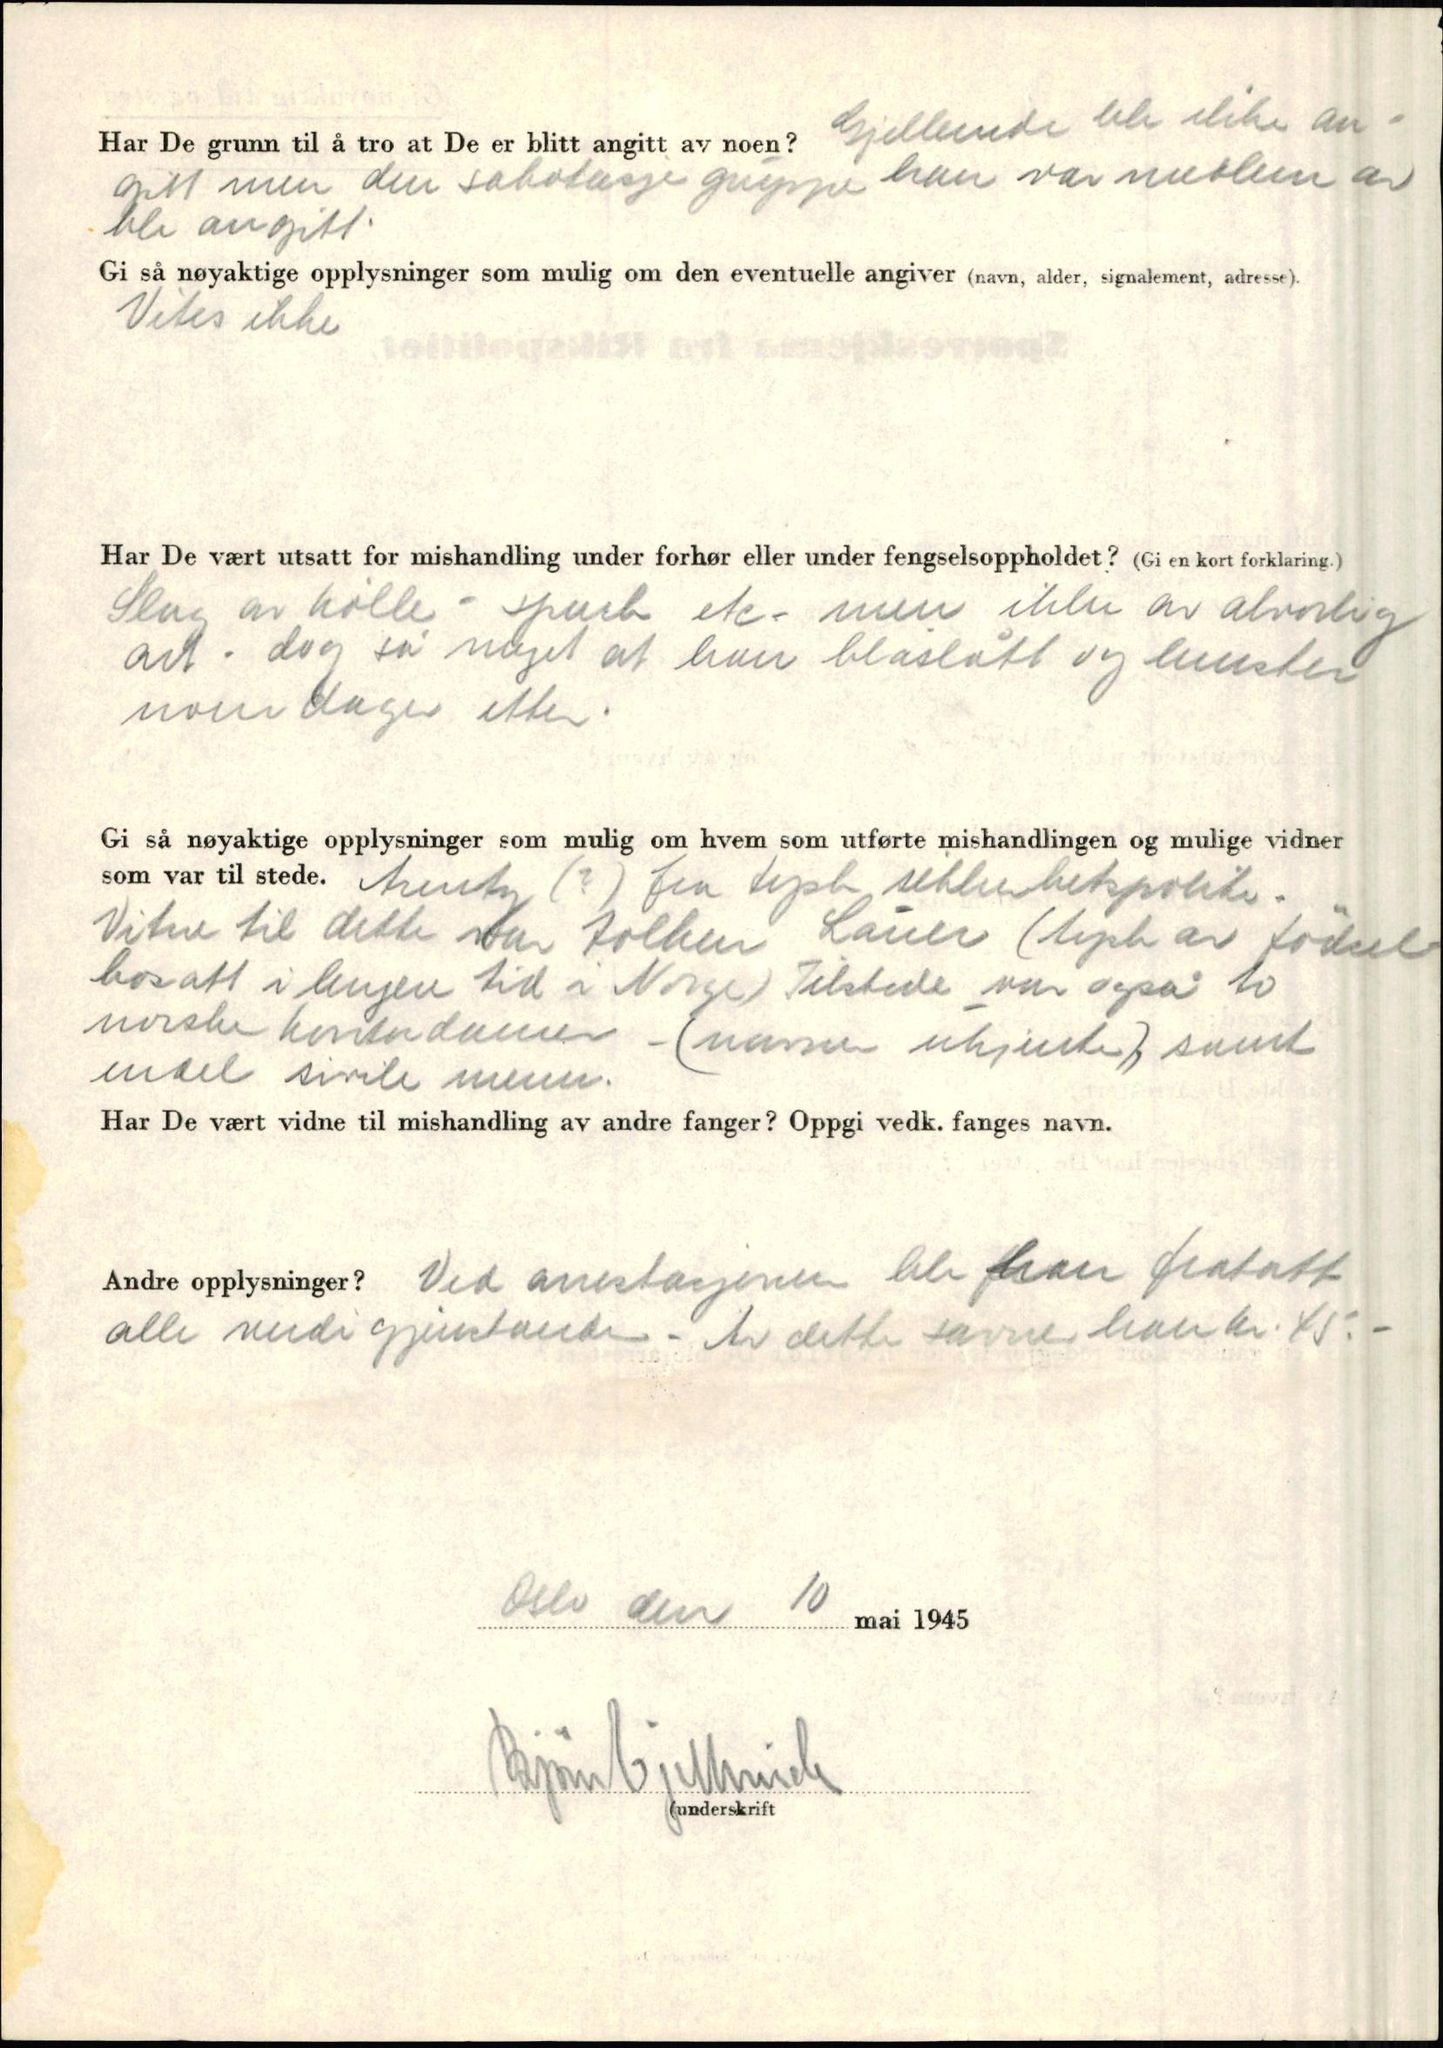 Har De grunn til å tro at De er blitt angitt av noen? Gjellunde ble ikke an-
gitt men den sabotasje gruppe han var medlem av
ble angitt.
Gi så nøyaktige opplysninger som mulig om den eventuelle angiver (navn, alder, signalement, adresse).
Vites ikke
Har De vært utsatt for mishandling under forhør eller under fengselsoppholdet? (Gi en kort forklaring.)
Slag av kölle - spark etc - men ikke av alvorlig
art - dog så meget at han blåslått og
noen dager etter.
Gi så nøyaktige opplysninger som mulig om hvem som utførte mishandlingen og mulige vidner
som var til stede. (?) fra tysk sikkerhetspoliti.
Vitne til dette var tolken Lauer (tysk av födsel
bosatt i lengere tid i Norge) Tilstede var også to
norske kontordamer - (navne ukjente), samt
endel sivile menn.
Har De vært vidne til mishandling av andre fanger? Oppgi vedk. fanges navn.
Andre opplysninger? Ved arrestasjonen ble han fratatt
alle verdigjenstander - Av dette savner han kr. 45.-
Oslo den 10 mai 1945
Bjørn
(underskrift